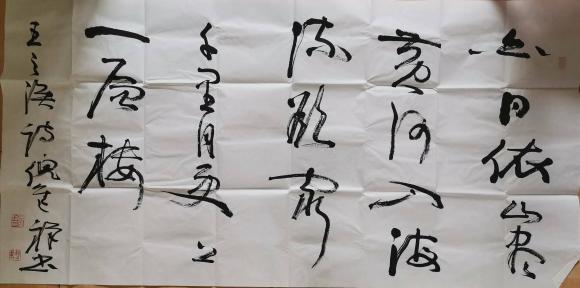 白日依山尽
黄河入海
流欲穷
千里目更上
一层楼
王之涣诗倪书